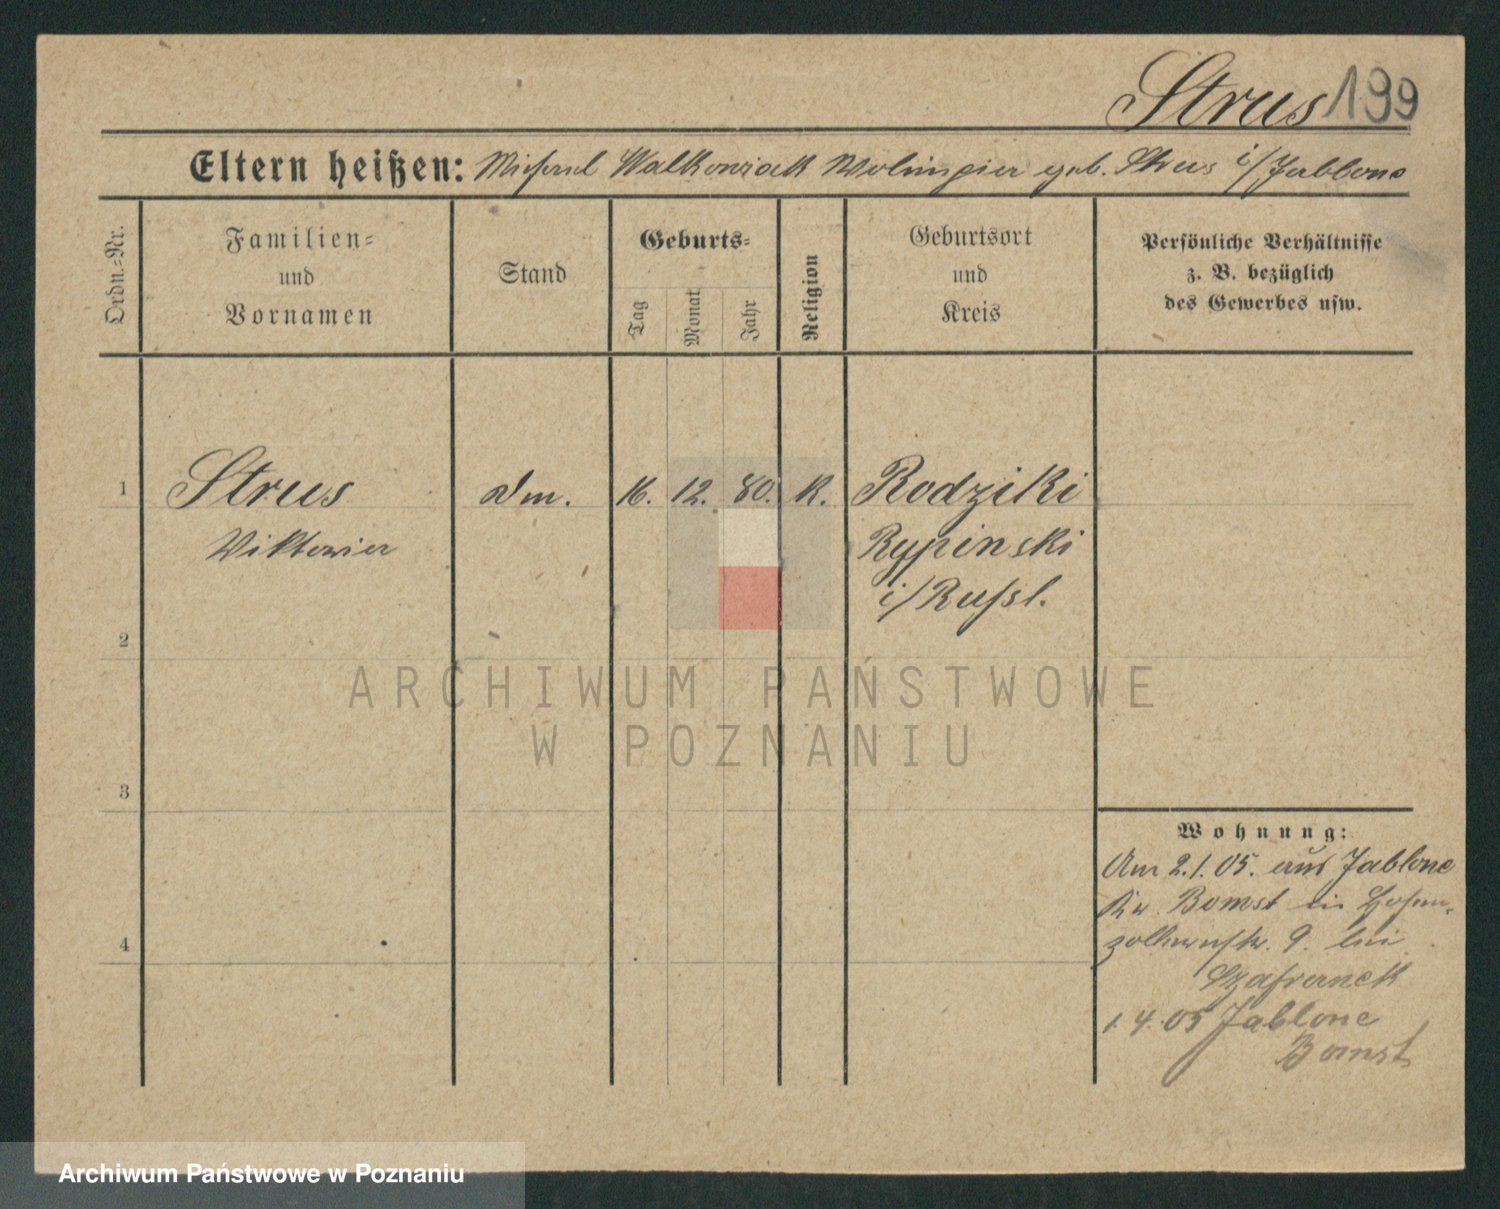 Strus 199
Eltern heißen: Michael Walkowiack geb. Strus i/Jablone
Ordn.-Nr.
Familien-
und
Vornamen
Stand
Geburts-
Tag
Monat
Jahr
Religion
Geburtsort
und
Kreis
Persönliche Verhältnisse
z. B. bezüglich
des Gewerbes usw.
1 Strus Dm. 16. 12. 80. K. Rodziki
Viktoria Rypinski
i/Russl.
2
3
4
Wohnung:
Am 2.1.05. aus Jablone
Kr. Bomst in Hohen-
zollernstr. 9. bei
Szafranek
1.4.05 Jablone
Bomst
ARCHIWUM PAŃSTWOWE
W POZNANIU
Archiwum Państwowe w Poznaniu